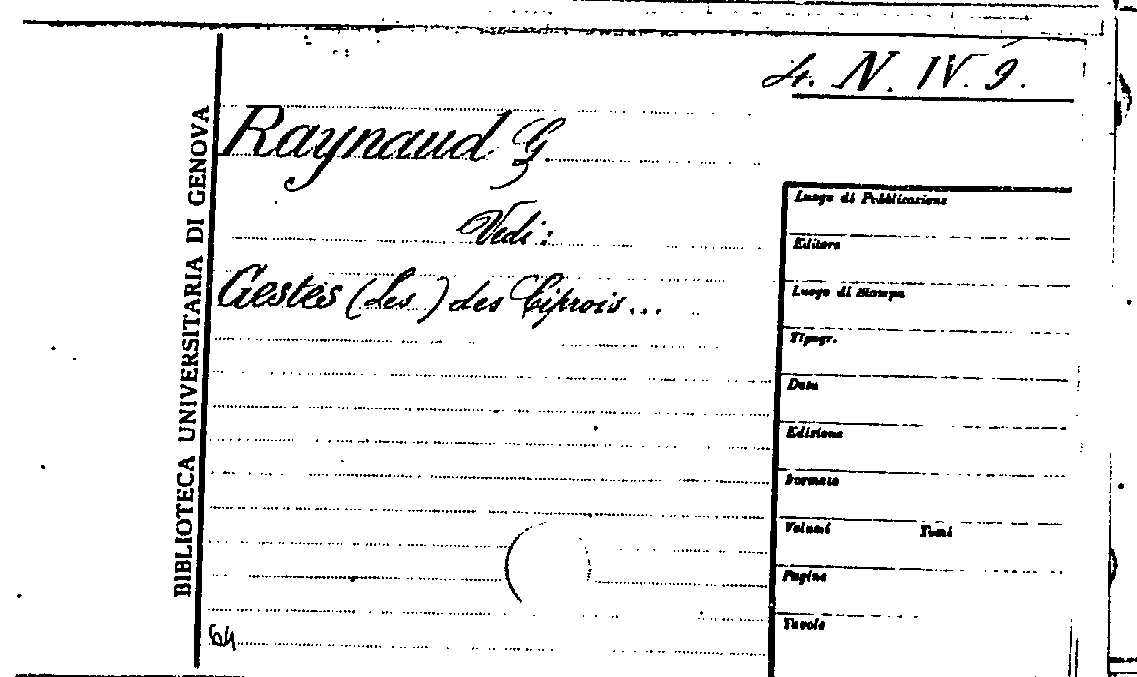 4. N. IV. 9.
BIBLIOTECA UNIVERSITARIA DI GENOVA
Raynaud G
Vedi:
Gestes (Les) des Ciprois...
Luogo di Pubblicazione
Editore
Luogo di Stampa
Tipogr.
Data
Edizione
Formato
Volumi Tomi
Pagine
Tavole